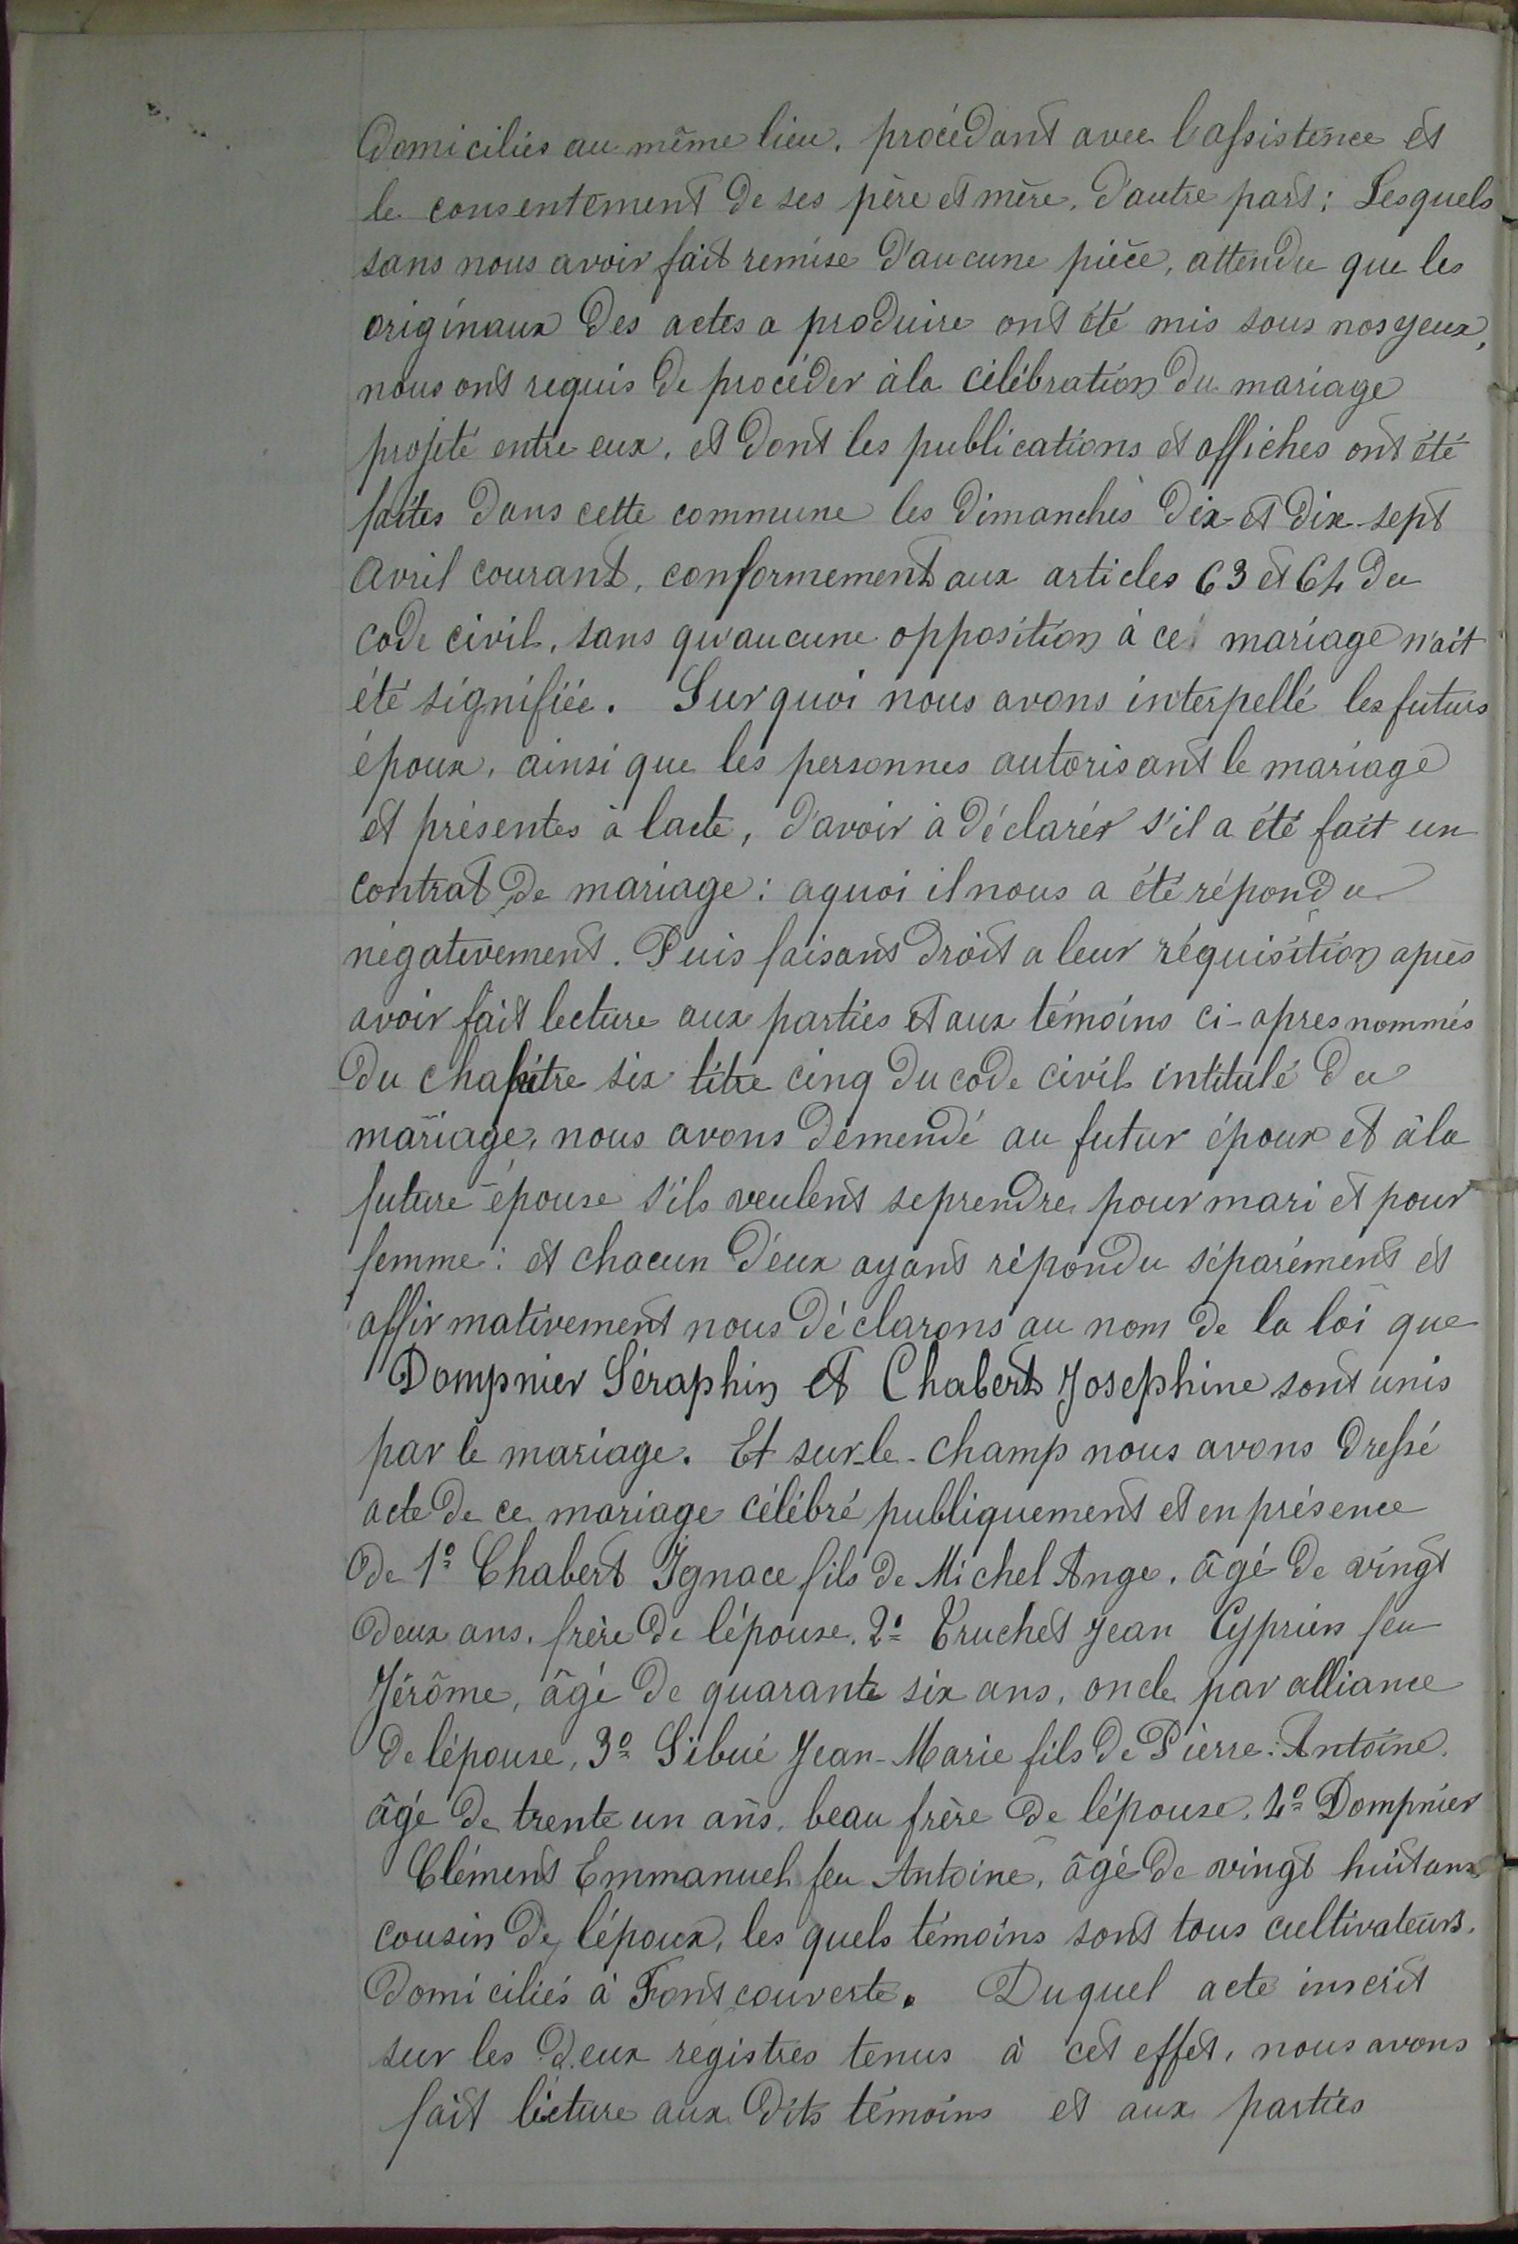 Domiciliés au même lieu, procédant avec l'assistence et
le consentement de ses père et mère, d'autre part; Lesquels
sans nous avoir fait remise d'aucune pièce, attendu que les
originaux des actes a produire ont été mis sous nos yeux,
nous ont requis de procéder à la célébration du mariage
projeté entre eux, et dont les publications et affiches ont été
faites dans cette commune les dimanches dix et dix-sept
avril courant, conformement aux articles 63 et 64 du
code civil, sans qu'aucune opposition à ce mariage n'ait
été signifiée. Sur quoi nous avons interpellé les futurs
époux, ainsi que les personnes autorisant le mariage
et présentes à lacte, d'avoir à déclarer s'il a été fait un
contrat de mariage : aquoi il nous a été répondu
négativement. Puis faisant droit a leur réquisition après
avoir fait lecture aux parties et aux témoins ci-apres nommés
du chapitre six titre cinq du code civil intitulé du
mariage, nous avons demendé au futur époux et à la
future épouse s'ils veulent se prendre pour mari et pour
femme : et chacun d'eux ayant répondu séparément et
affirmativement nous déclarons au nom de la loi que
Dompnier Séraphin et Chabert Josephine sont unis
par le mariage. Et sur-le-champ nous avons dressé
acte de ce mariage célébré publiquement et en présence
de 1º Chabert Ignace fils de Michel Ange, âgé de vingt
deux ans, frère de lépouse, 2º Truchet Jean Cyprien feu
Jérôme, âgé de quarante six ans, oncle par alliance
de lépouse, 3º Sibué Jean-Marie fils de Pierre-Antoine,
âgé de trente un ans, beau frère de lépouse, 4º Dompnier
Clément Emmanuel feu Antoine, âgé de vingt huit ans
cousin de lépoux, les quels témoins sont tous cultivateurs,
domiciliés à Fontcouverte. Duquel acte inscrit
sur les deux registres tenus à cet effet, nous avons
fait lecture aux dits témoins et aux parties